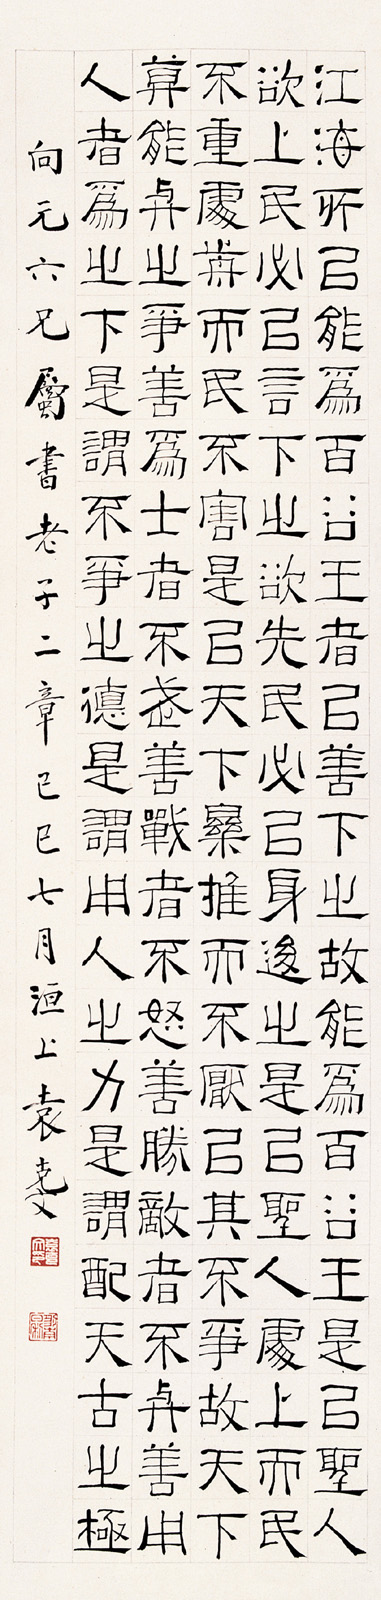 江海所以能爲百谷王者以善下之故能爲百谷王是以聖人
欲上民必以言下之欲先民必以身後之是以聖人處上而民
不重處前而民不害是以天下樂推而不厭以其不爭故天下
莫能與之爭善爲士者不武善戰者不怒善勝敵者不與善用
人者爲之下是謂不爭之德是謂用人之力是謂配天古之極
向元六兄屬書老子二章己巳七月洹上袁克文